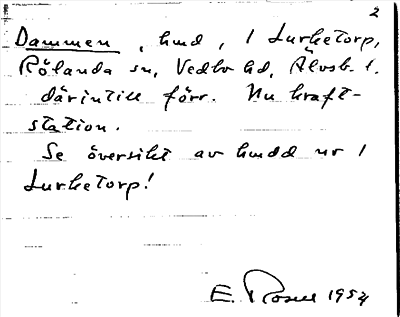 2
Dammen, hmd, 1 Lurketorp,
Rölanda sn, Vedbo hd, Älvsb. l.
därintill förr. Nu kraft-
station.
Se översikt av hmdd nr 1
Lurketorp!
E. Rosell 1954